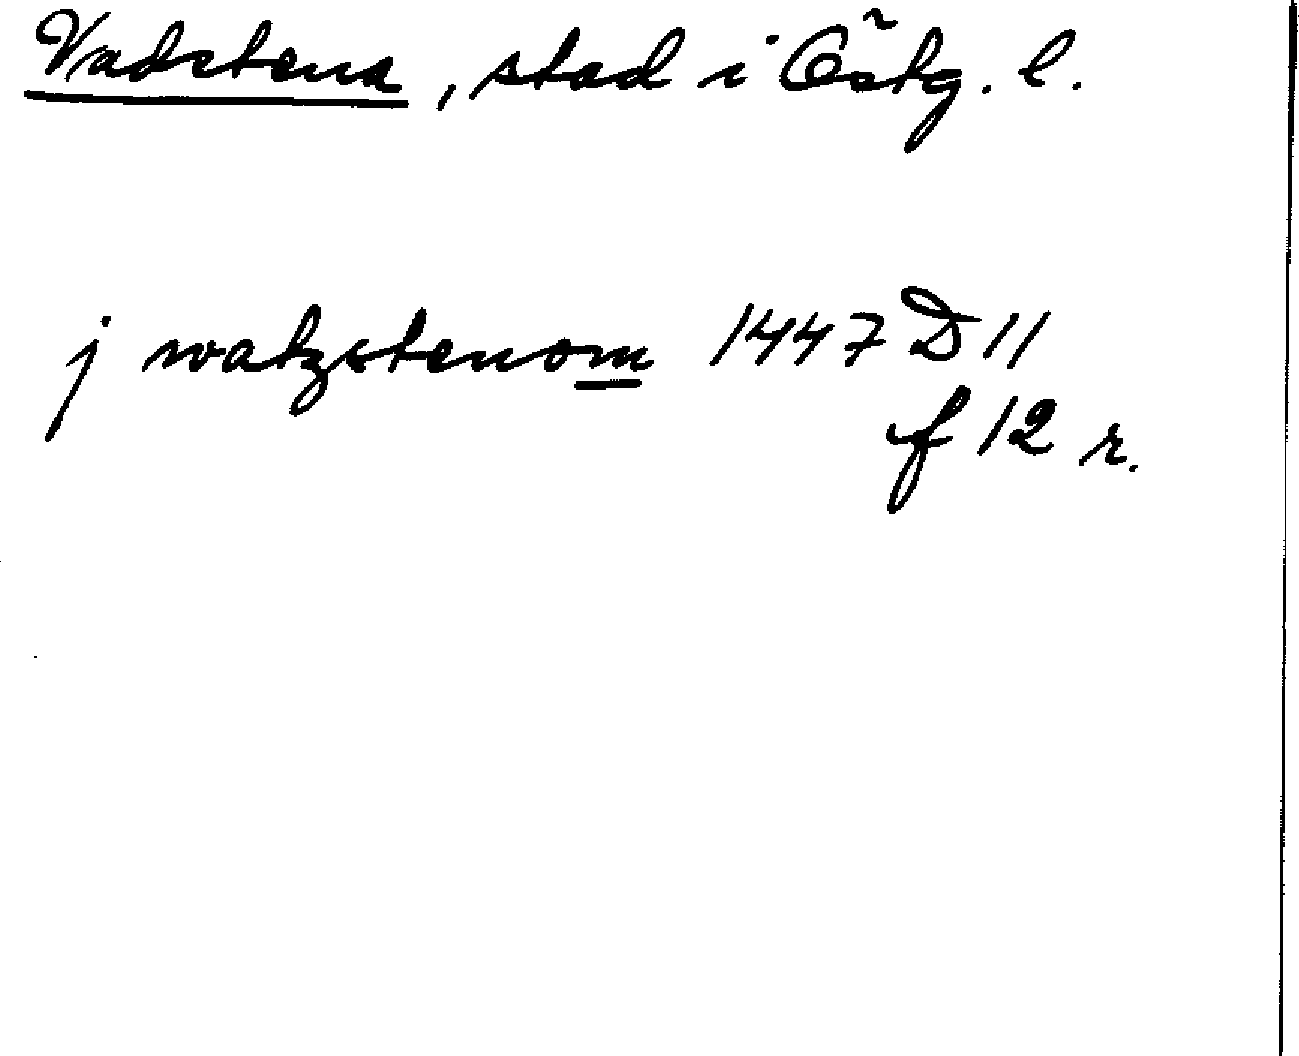 Vadstena, stad i Östg. l.
j watzstenom 1447 D 11
f 12 r.